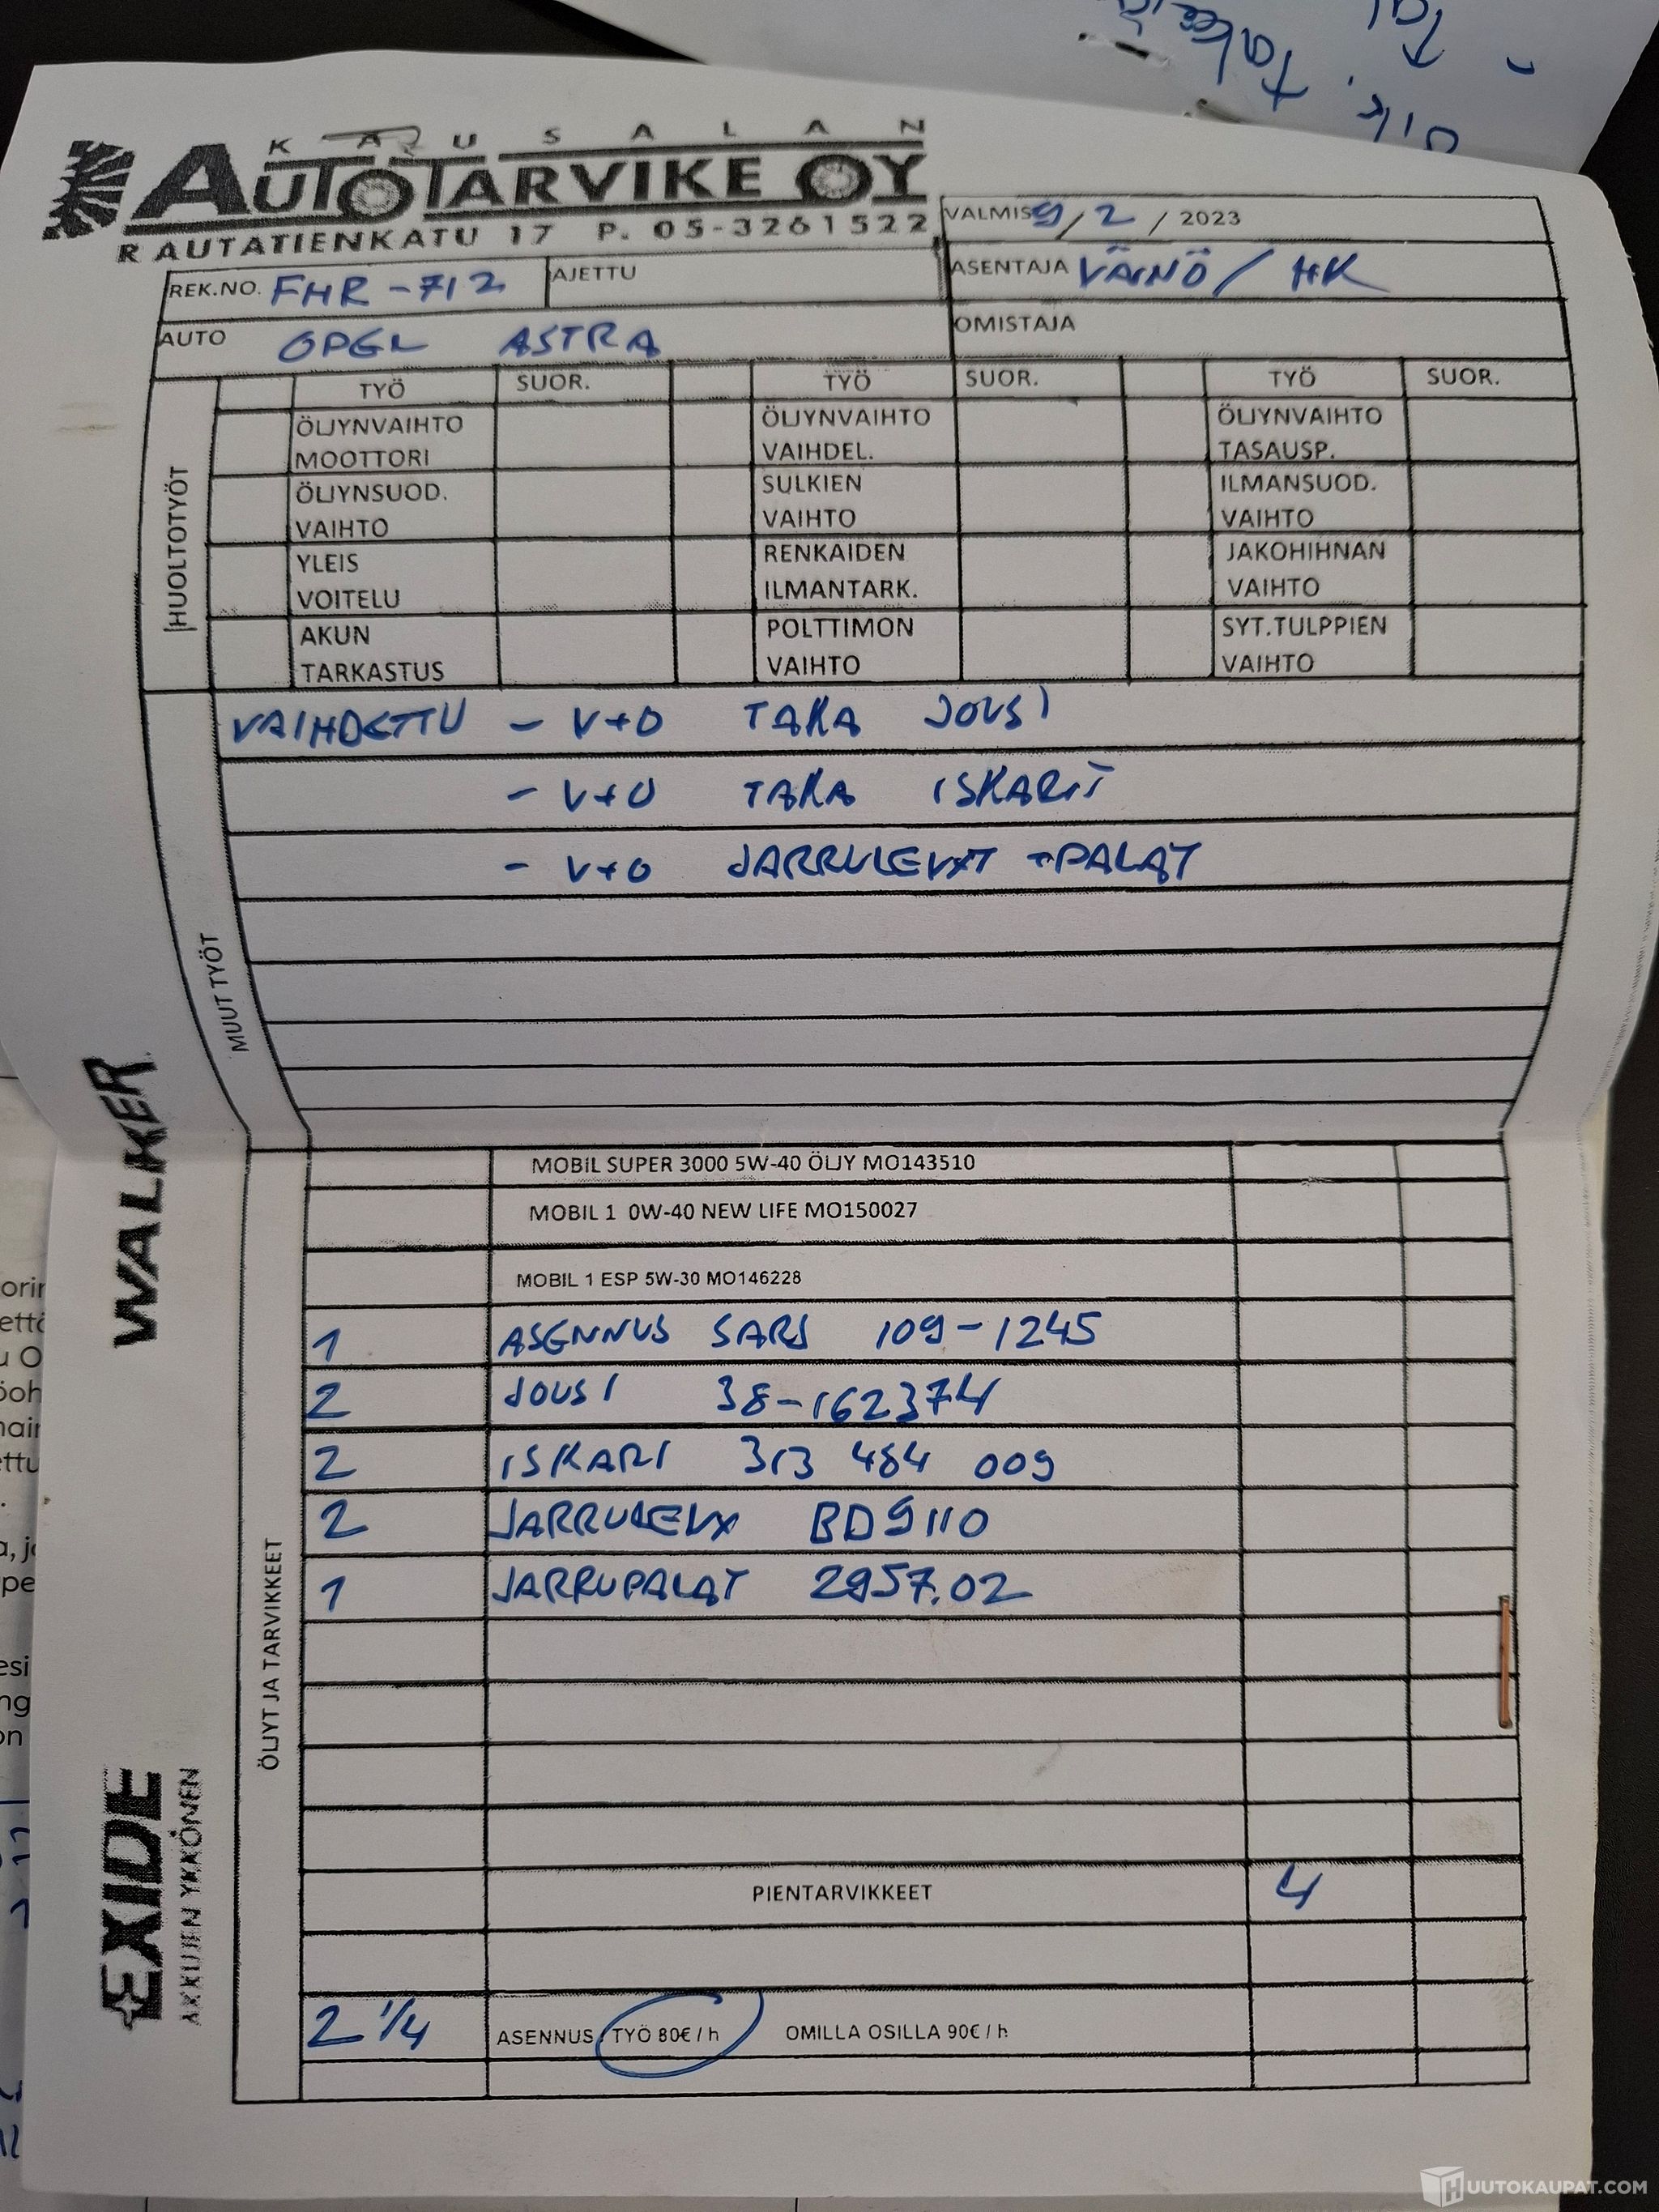 KAUSALAN
AUTOTARVIKE OY
RAUTATIENKATU 17 P. 05-3261522
VALMIS 9/2 / 2023
REK.NO. FHR-712 AJETTU
ASENTAJA VÄINÖ / HK
AUTO OPEL ASTRA
OMISTAJA
HUOLTOTYÖT
TYÖ SUOR. TYÖ SUOR. TYÖ SUOR.
ÖLJYNVAIHTO ÖLJYNVAIHTO ÖLJYNVAIHTO
MOOTTORI VAIHDEL. TASAUSP.
ÖLJYNSUOD. SULKIEN ILMANSUOD.
VAIHTO VAIHTO VAIHTO
YLEIS RENKAIDEN JAKOHIHNAN
VOITELU ILMANTARK. VAIHTO
AKUN POLTTIMON SYT.TULPPIEN
TARKASTUS VAIHTO VAIHTO
MUUT TYÖT
VAIHDETTU - V+O TAKA JOUSI
- V+O TAKA ISKARIT
- V+O JARRULEVYT +PALAT
WALKER
ÖLJYT JA TARVIKKEET
MOBIL SUPER 3000 5W-40 ÖLJY MO143510
MOBIL 1 0W-40 NEW LIFE MO150027
MOBIL 1 ESP 5W-30 MO146228
1 ASENNUS SARJ 109-1245
2 JOUSI 38-162374
2 ISKARI 313 484 009
2 JARRULEVY BD9110
1 JARRUPALAT 2957.02
PIENTARVIKKEET 4
2 1/4 ASENNUS TYÖ 80€/h OMILLA OSILLA 90€/h
EXIDE
AKKUJEN YKKÖNEN
HUUTOKAUPAT.COM